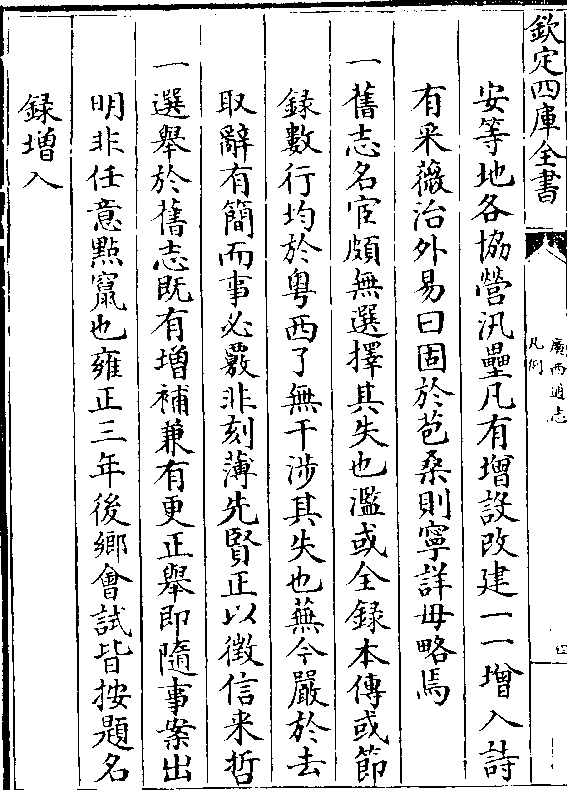 欽定四庫全書
廣西通志
凡例
四
安等地各協營汛壘凡有增設改建一一增入詩
有采薇治外易曰固於苞桑則寧詳毋略焉
一舊志名宦頗無選擇其失也濫或全錄本傳或節
錄數行均於粤西了無干涉其失也蕪今嚴於去
取辭有簡而事必覈非刻薄先賢正以徵信来哲
一選舉於舊志既有增補兼有更正舉即隨事案出
明非任意點竄也雍正三年後鄉會試皆按題名
録增入